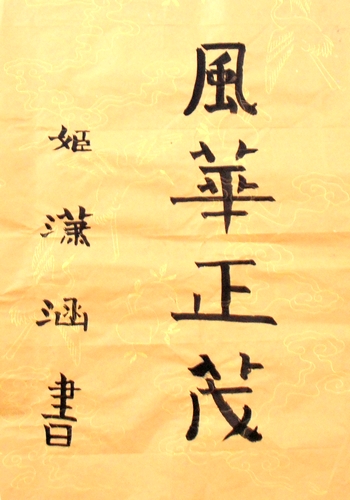 風華正茂
姬潇涵書